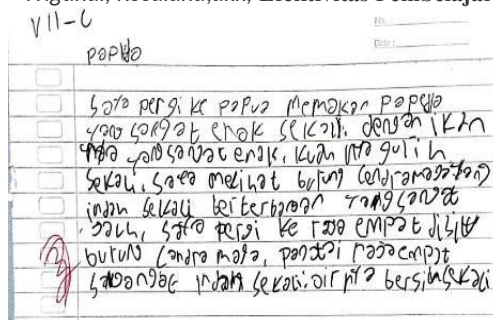 VII-C
No.
Date:
papua
saya pergi ke papua memakan papeda
yang sangat enak sekali. dengan ikan
yang sangat enak, kuah nya gurih
sekali, saya melihat burung cendrawasih yang
indah sekali berterbangan yang sangat
saya pergi ke raja empat disitu
burung pantai raja empat
indah sekali. air nya bersih sekali